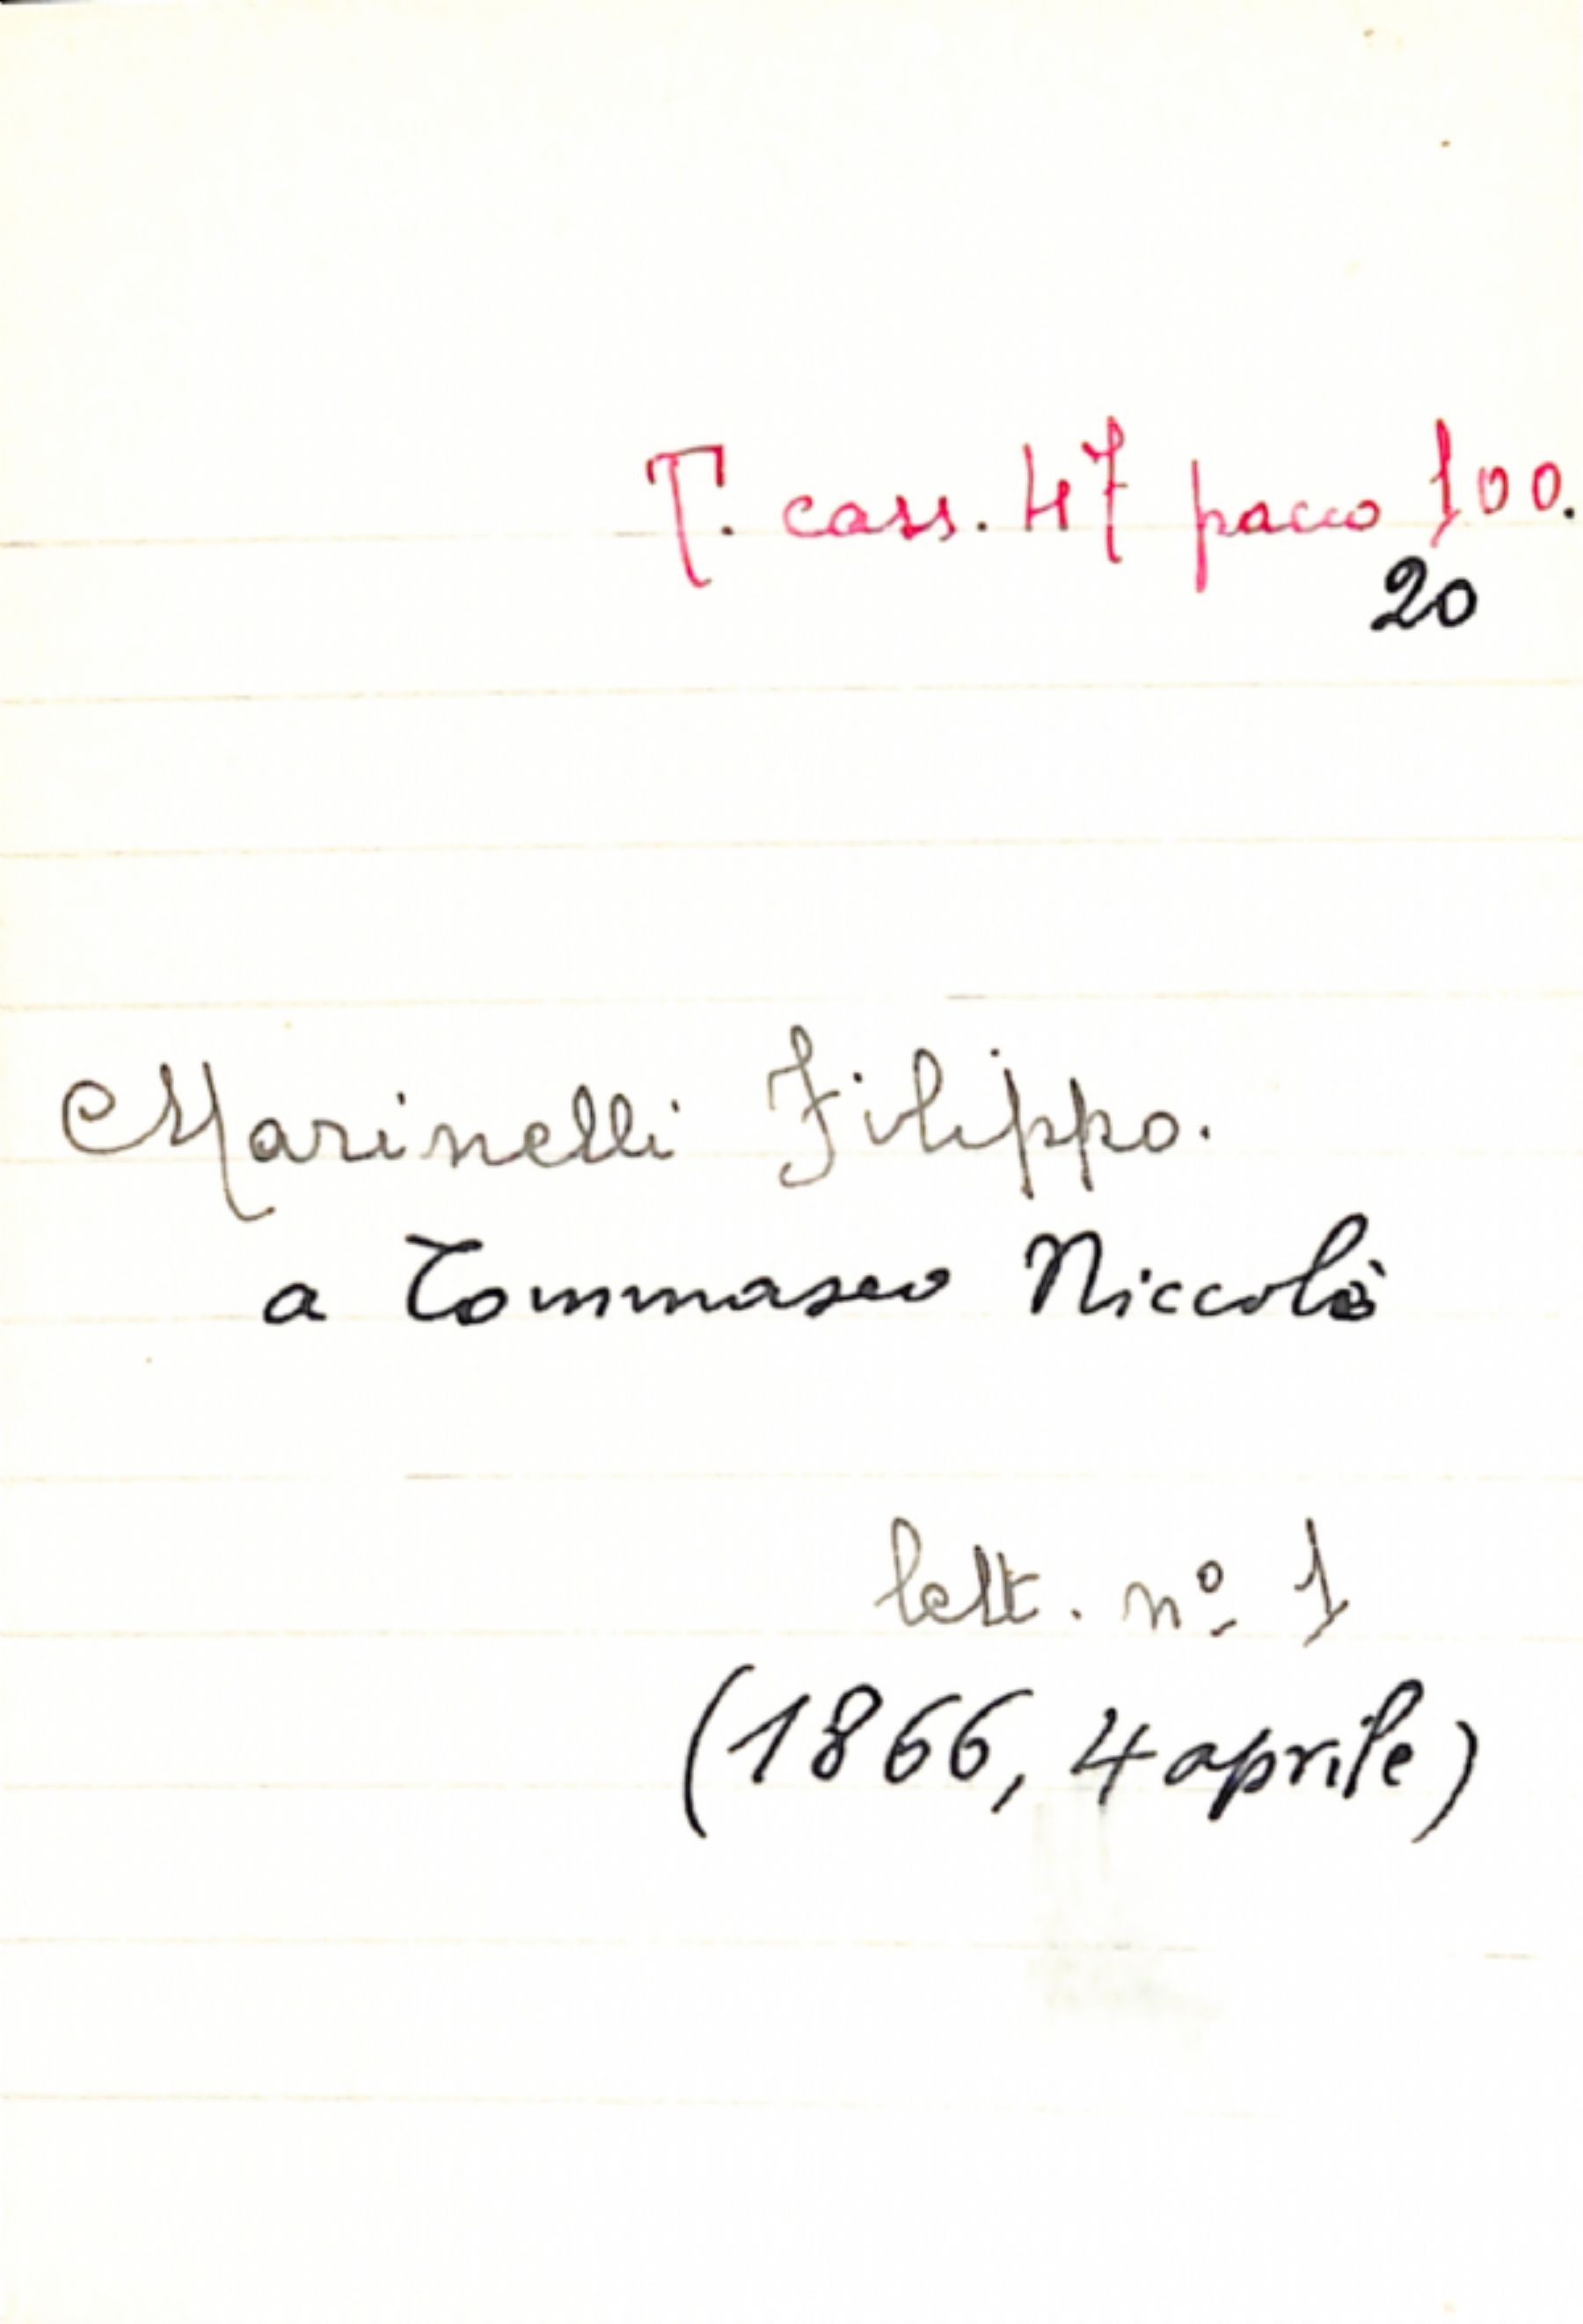 T. cass. 47 pacco 100.
20
Marinelli Filippo.
a Tommaseo Niccolò
lett. nº 1
(1866, 4 aprile)